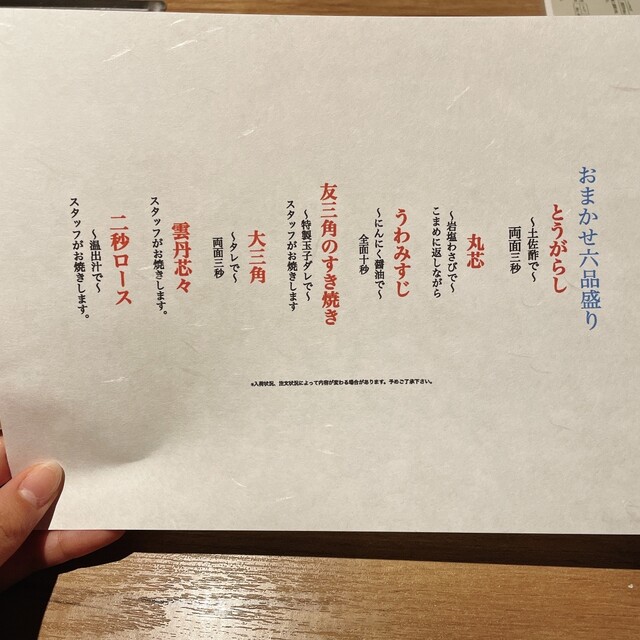 おまかせ六品盛り
とうがらし
～土佐酢で～
両面三秒
丸芯
～岩塩わさびで～
こまめに返しながら
うわみすじ
～にんにく醤油で～
全面十秒
友三角のすき焼き
～特製玉子ダレで～
スタッフがお焼きします
大三角
～タレで～
両面三秒
雲丹芯々
スタッフがお焼きします。
二秒ロース
～温出汁で～
スタッフがお焼きします。
※入荷状況、注文状況によって内容が変わる場合があります。予めご了承下さい。